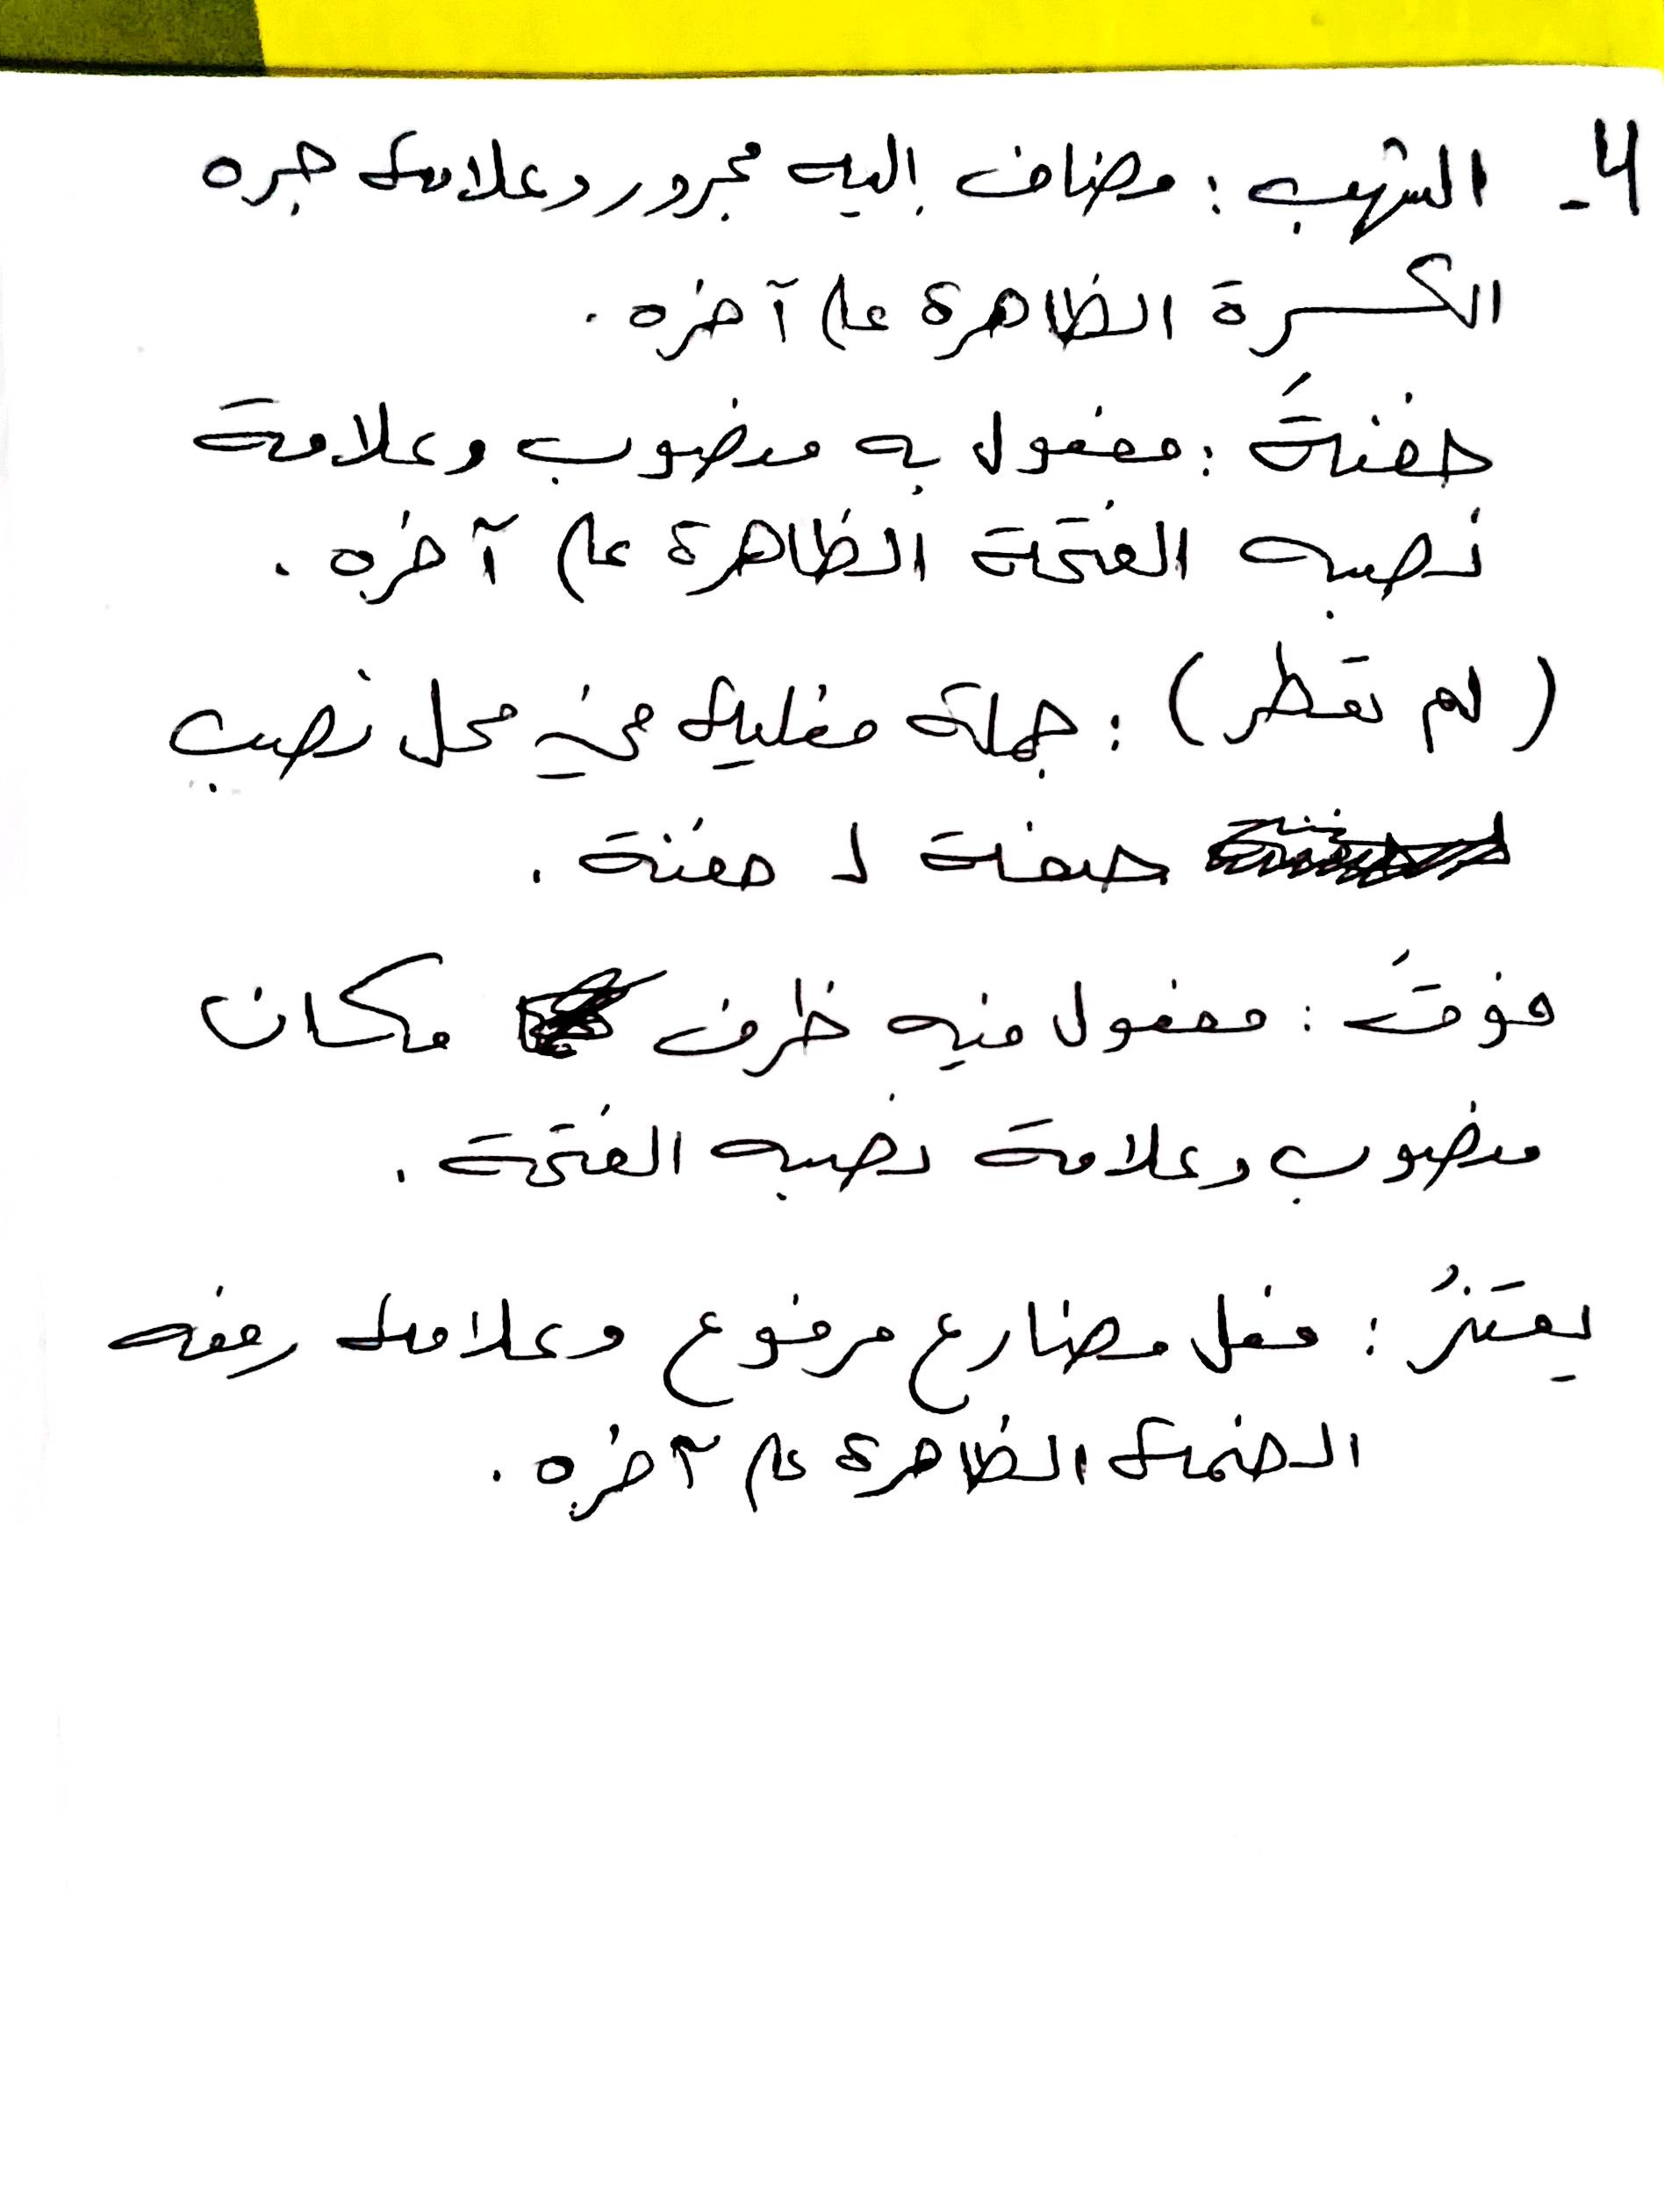 4- الشهب : مضاف إليه مجرور وعلامة جره
الكسرة الظاهرة على آخره .
حفنةً : مفعول به منصوب وعلامة
نصبه الفتحة الظاهرة على آخره .
( لم تقطر ) : جملة فعلية في محل نصب
صفة لـ حفنة .
فوقَ : مفعول فيه ظرف مكان
منصوب وعلامة نصبه الفتحة .
يفترُ : فعل مضارع مرفوع وعلامة رفعه
الضمة الظاهرة على آخره .